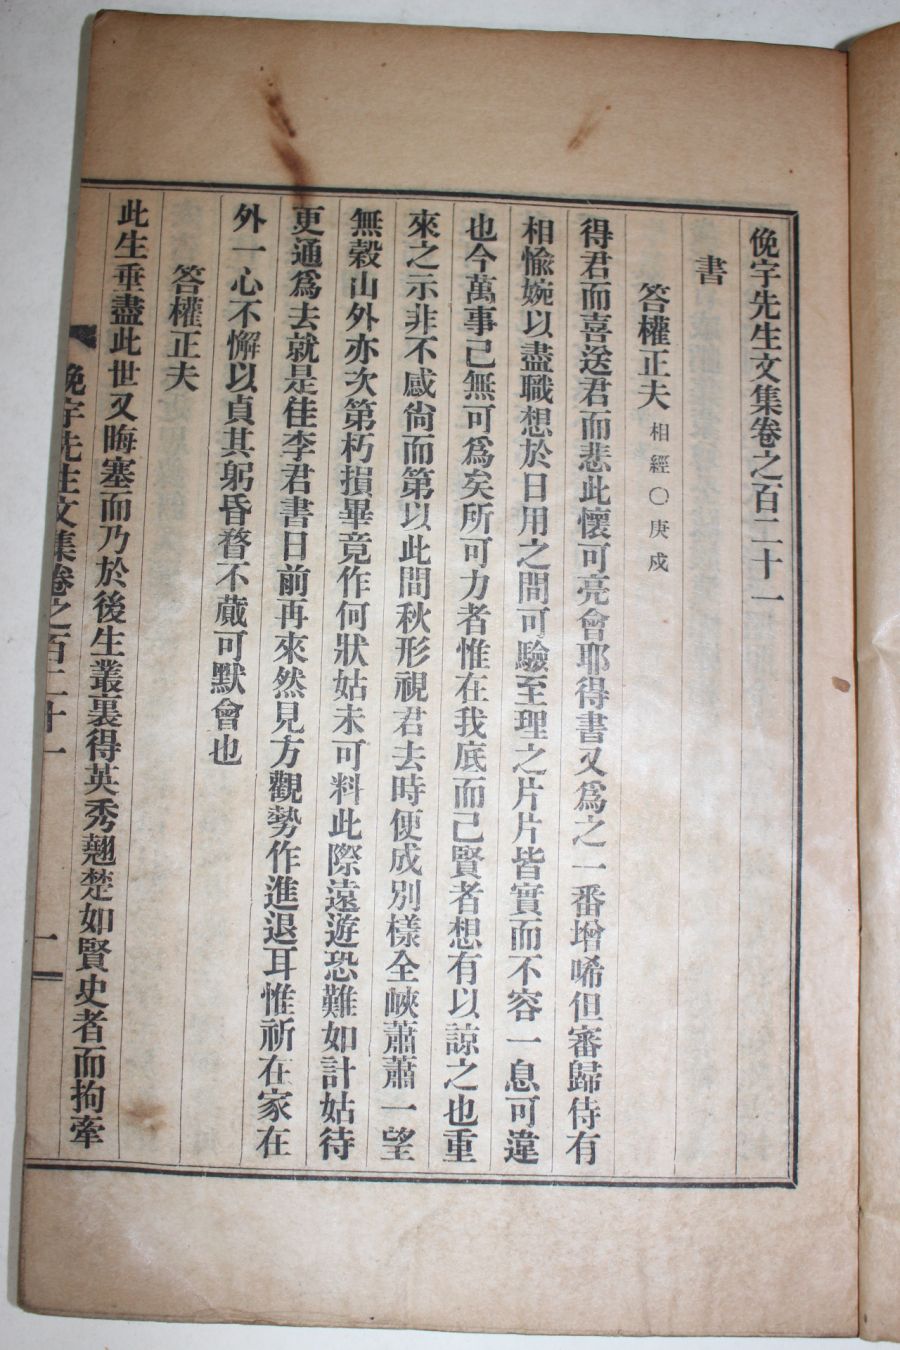 俛宇先生文集卷之百二十一
書
答權正夫相經○庚戌
得君而喜送君而悲此懷可亮會耶得書又爲之一番增唏但審歸侍有
相愉婉以盡職想於日用之間可驗至理之片片皆實而不容一息可違
也今萬事已無可爲矣所可力者惟在我底而已賢者想有以諒之也重
來之示非不感尙而第以此間秋形視君去時便成別樣全峽蕭蕭一望
無穀山外亦次第朽損畢竟作何狀姑未可料此際遠遊恐難如計姑待
更通爲去就是佳李君書日前再來然見方觀勢作進退耳惟祈在家在
外一心不懈以貞其躬昏瞀不蕆可默會也
答權正夫
此生垂盡此世又晦塞而乃於後生叢裏得英秀翹楚如賢史者而拘牽
俛宇先生文集卷之百二十一
一